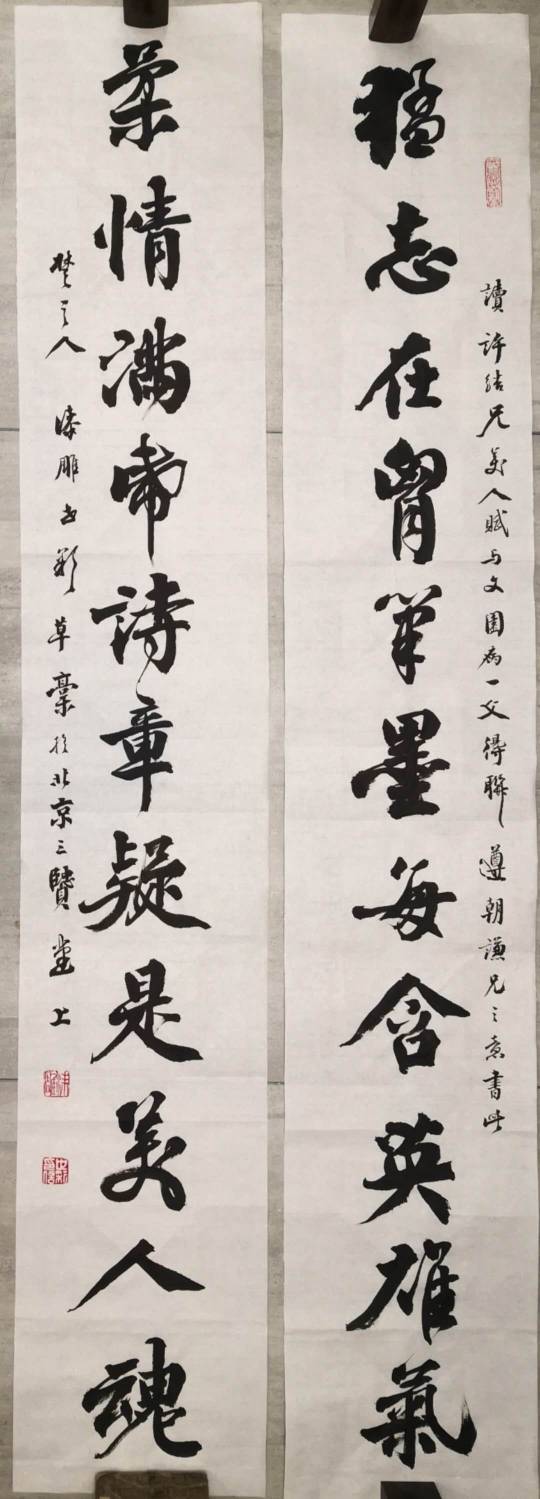 讀許結兄美人賦与文園病一文得聯遵朝謙兄之意書此
猛志在胷筆墨每含英雄氣
柔情滿帋詩章疑是美人魂
楚之人 漆雕世彩草稾於北京三賢堂上